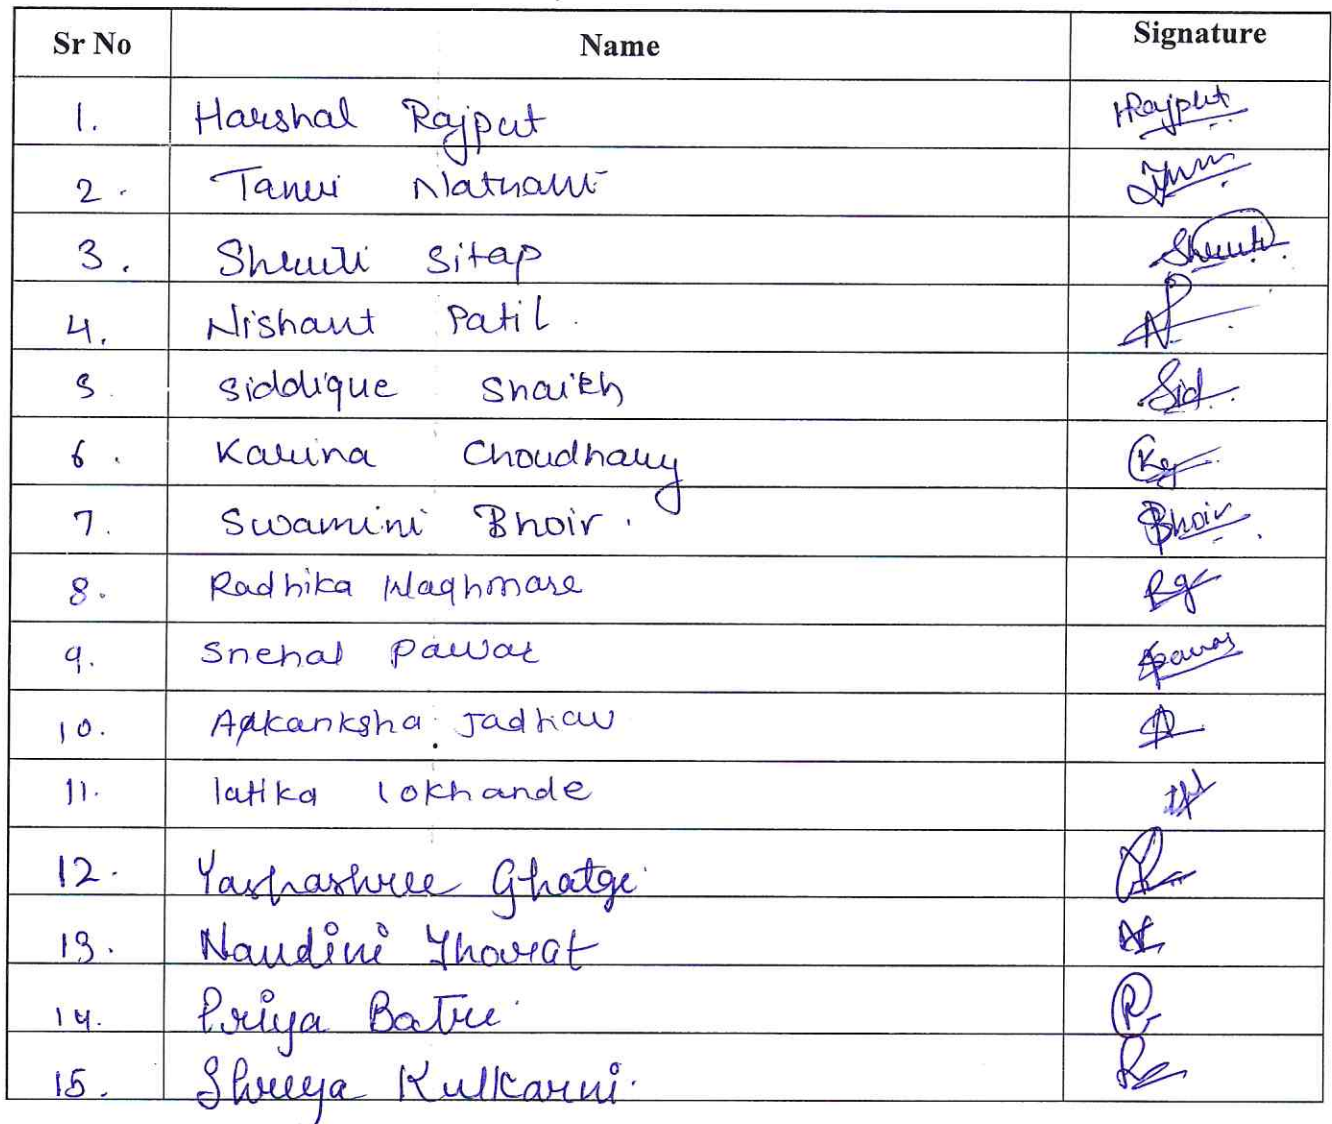 Sr No Name Signature
1. Harshal Rajput HRajput
2. Tanvi
3. Shruti Sitap Shruti
4. Nishant Patil
5. Siddique Shaikh Sid
6. Karina Choudhary
7. Swamini Bhoir. Bhoir
8. Radhika Waghmare
9. Snehal Pawar SPawar
10. Aakanksha Jadhav
11. latika lokhande
12. Yashashree Ghatge
13. Nandini Thorat
14. Priya Batre
15. Shreya Kulkarni.